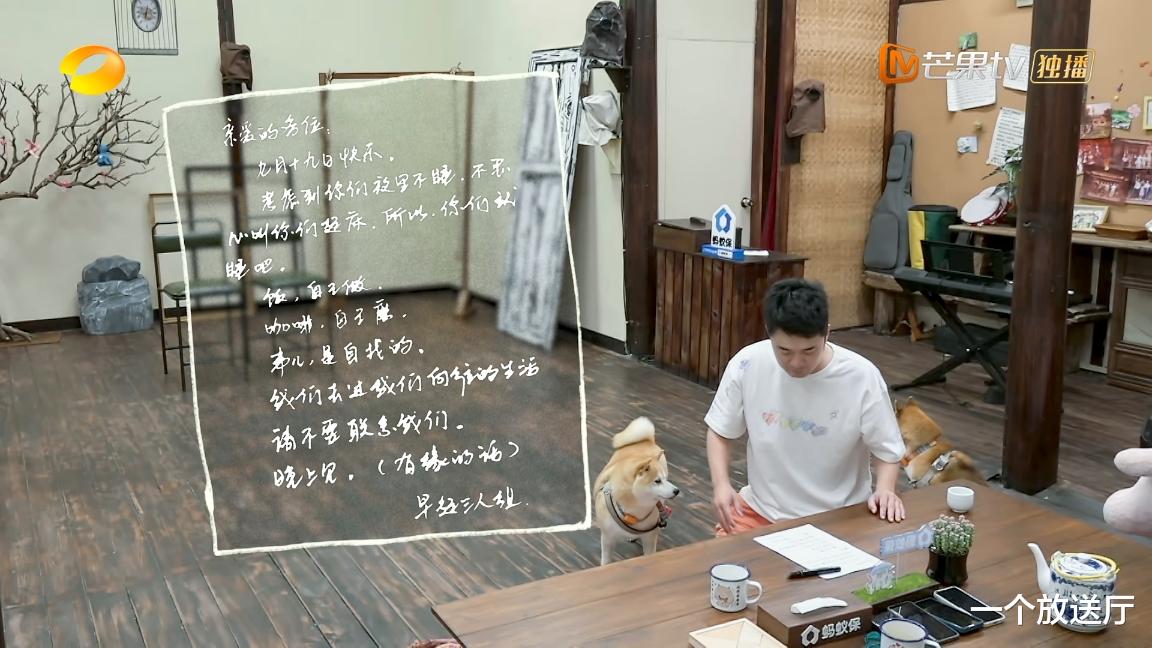 芒果tv 独播
亲爱的各位：
九月十九日快乐。
考虑到你们夜里不睡，不忍
心叫你们起床，所以，你们就
睡吧。
饭，自己做。
咖啡，自己磨。
事儿，是自找的。
我们去过我们向往的生活
请不要联系我们。
晚上见。（有缘的话）
早起三人组.
蚂蚁保
蚂蚁保
一个放送厅